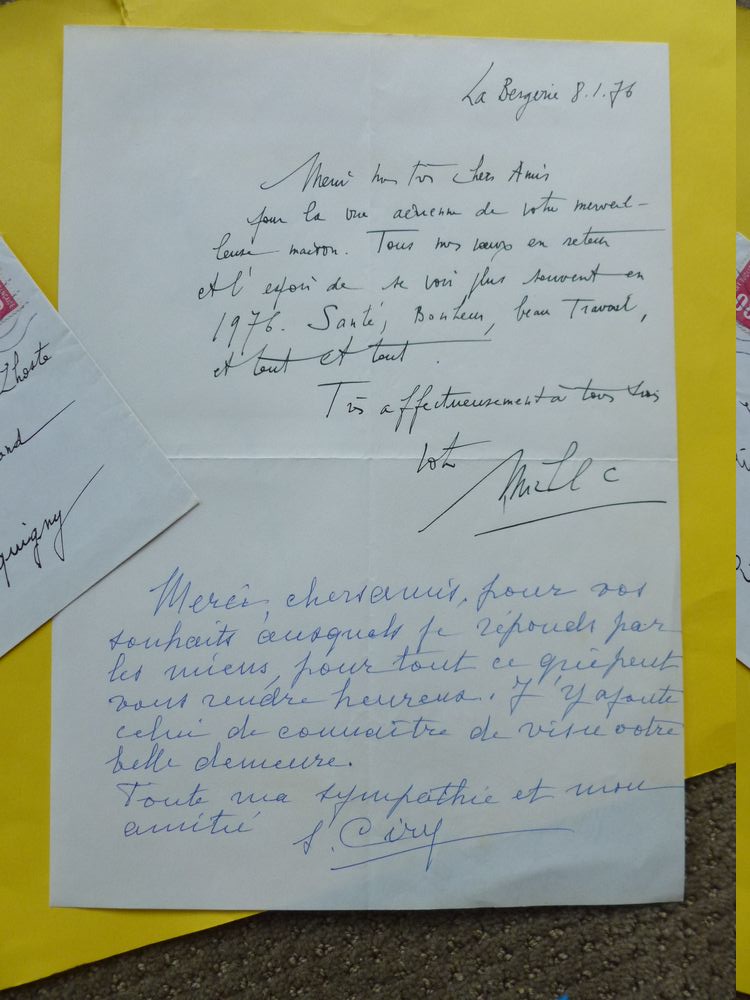 La Bergerie 8.1.76
Merci mes très chers Amis
pour la vue aérienne de votre merveil-
leuse maison. Tous mes vœux en retour
et l'espoir de se voir plus souvent en
1976. Santé, Bonheur, beau Travail,
et tout et tout.
Très affectueusement à tous trois
Votre
Michel C
Merci, chers amis, pour vos
souhaits auxquels je réponds par
les miens, pour tout ce qui peut
vous rendre heureux. J'y ajoute
celui de connaître de visu votre
belle demeure.
Toute ma sympathie et mon
amitié
S. Ciry
Lhoste
and
quigny